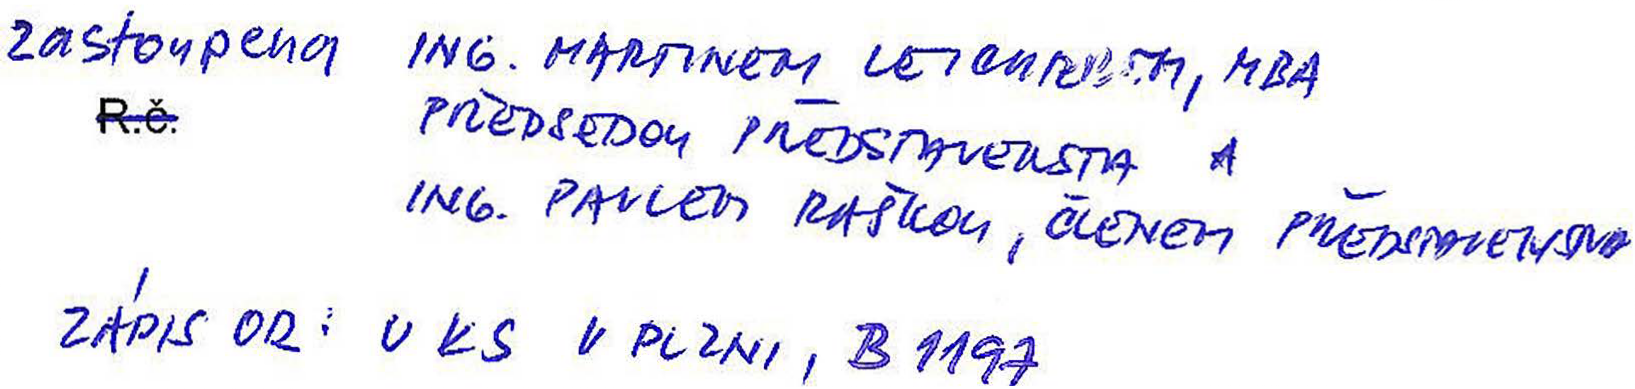 zastoupena ING. MARTINEM MBA
R.č. PŘEDSEDOU PŘEDSTAVENSTVA A
ING. PAVLEM RAŠKOU, ČLENEM PŘEDSTAVENSTVA
ZÁPIS OR: U KS V PLZNI, B 1197